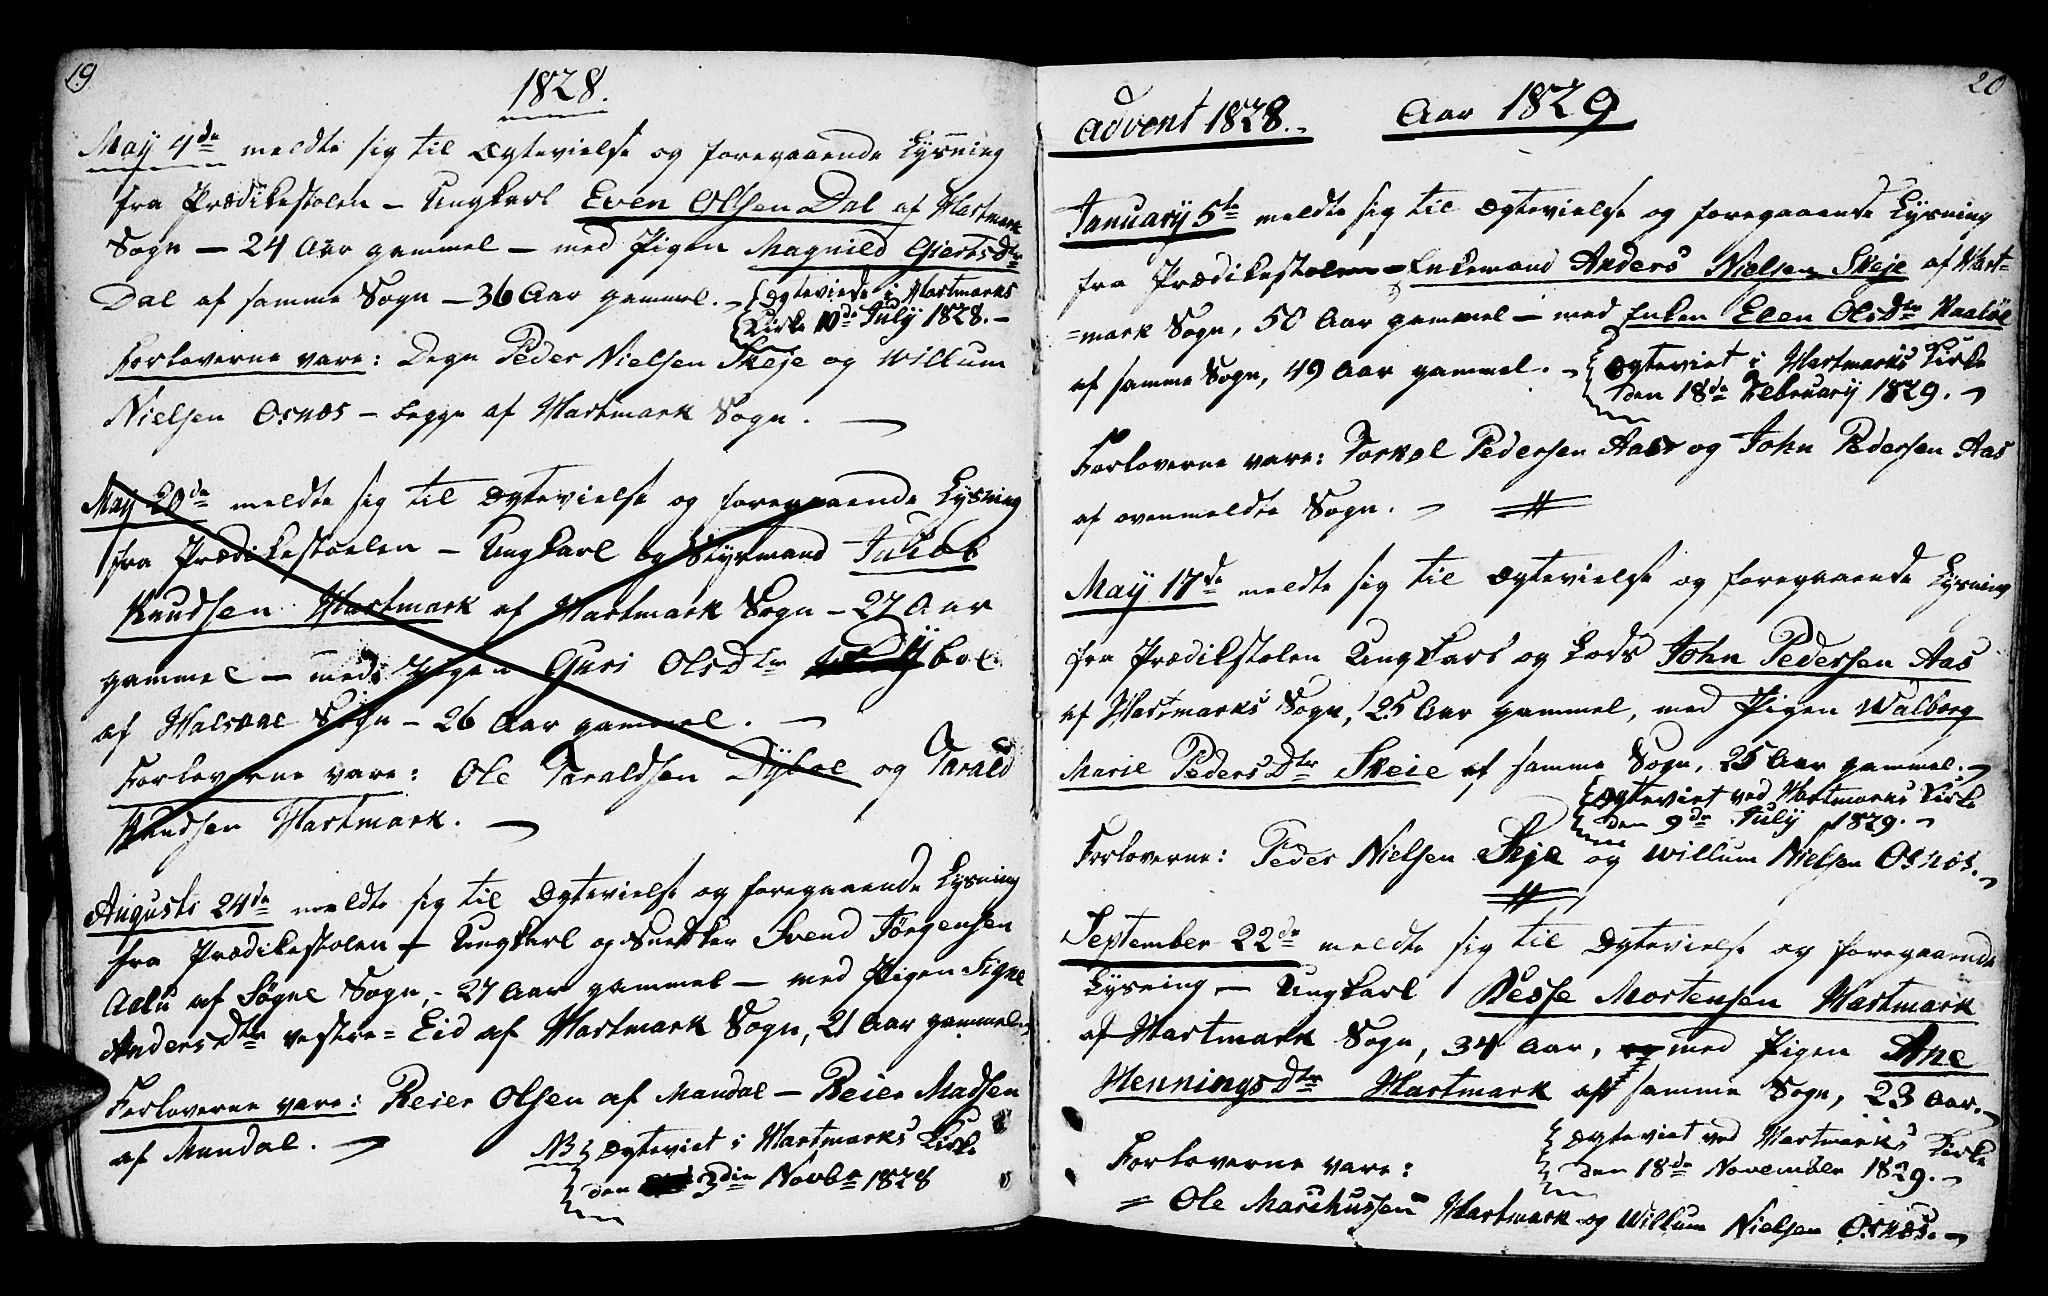 19
1828.
May 4de meldte sig til Ægtevielse og foregaaende Lysning
fra Prædikestolen – Ungkarl Even Olsen Dal af Hartmark
Sogn – 24 Aar gammel – med Pigen Magnild GiertsDtr
Dal af samme Sogn – 36 Aar gammel. – Ægteviede i Hartmarks
Kirke 10de July 1828. –
Forloverne vare: Degn Peder Nielsen Skeje og Willum
Nielsen Osnæs – begge af Hartmark Sogn. –
May 20de meldte sig til Ægtevielse og foregaaende Lysning
fra Prædikestoelen – Ungkarl og Styrmand Jacob
Knudsen Hartmark af Hartmark Sogn – 27 Aar
gammel – med Pigen Guri OlsDtr Dyboe
af Halsaae Sogn – 26 Aar gammel. –
Forloverne vare: Ole Taraldsen Dyboe og Tarald
Knudsen Hartmark. –
Augusti 24de meldte sig til Ægtevielse og foregaaende Lysning
fra Prædikestolen – Ungkarl og Snedker Svend Jörgensen
af Søgne Sogn, – 27 Aar gammel – med Pigen Signe
AndersDtr vestre = Eid af Hartmark Sogn, 21 Aar gammel –
Forloverne vare: Reier Olsen af Mandal – Reier Madsen
af Mandal. –
NB Ægteviet i Hartmarks Kirke
den 3die Novbr 1828
20
Advent 1828. –
Aar 1829
January 5te meldte sig til Ægtevielse og foregaaende Lysning
fra Prædikestolen – Enkemand Anders Nielsen Skeje af Hart-
=mark Sogn, 50 Aar gammel – med Enken Elen OlsDtr
af samme Sogn, 49 Aar gammel. – Ægteviet i Hartmarks Kirke
den 18de February 1829. –
Forloverne vare: Torkel Pedersen Aas og John Pedersen Aas
af ovenmeldte Sogn. –
May 17de meldte sig til Ægtevielse og foregaaende Lysning
fra Prædikstolen Ungkarl og Lods John Pedersen Aas
af Hartmarks Sogn, 25 Aar gammel, med Pigen Walborg
Marie PedersDtr Skeie af samme Sogn, 25 Aar gammel. –
Ægteviet ved Hartmarks Kirke
den 9de July 1829. –
Forloverne: Peder Nielsen Skje og Willum Nielsen Osnæs. –
September 22de meldte sig til Ægtevielse og foregaaende
Lysning – Ungkarl Besse Mortensen Hartmark
af Hartmark Sogn, 34 Aar, med Pigen Ane
HenningsDtr Hartmark af samme Sogn, 23 Aar. –
Ægteviet ved Hartmarks Kirke
den 18de November 1829. –
Forloverne vare:
= Ole Marchussen Hartmark og Willum Nielsen Osnæs. –